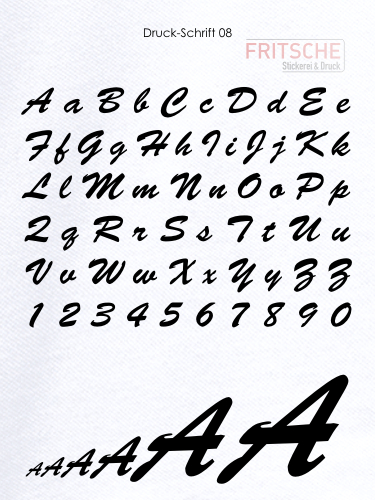 Druck-Schrift 08
FRITSCHE
Stickerei & Druck
A a B b C c D d E e
F f G g H h I i J j K k
L l M m N n O o P p
Q q R r S s T t U u
V v W w X x Y y Z Z
1 2 3 4 5 6 7 8 9 0
A A A A A A